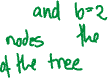 and b=2
nodes the
of the tree